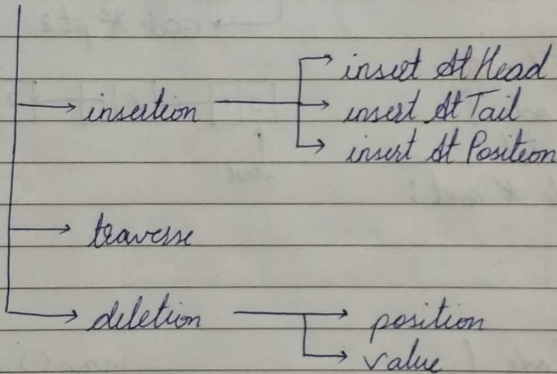 insert At Head
insertion
insert At Tail
insert At Position
traverse
deletion
position
value